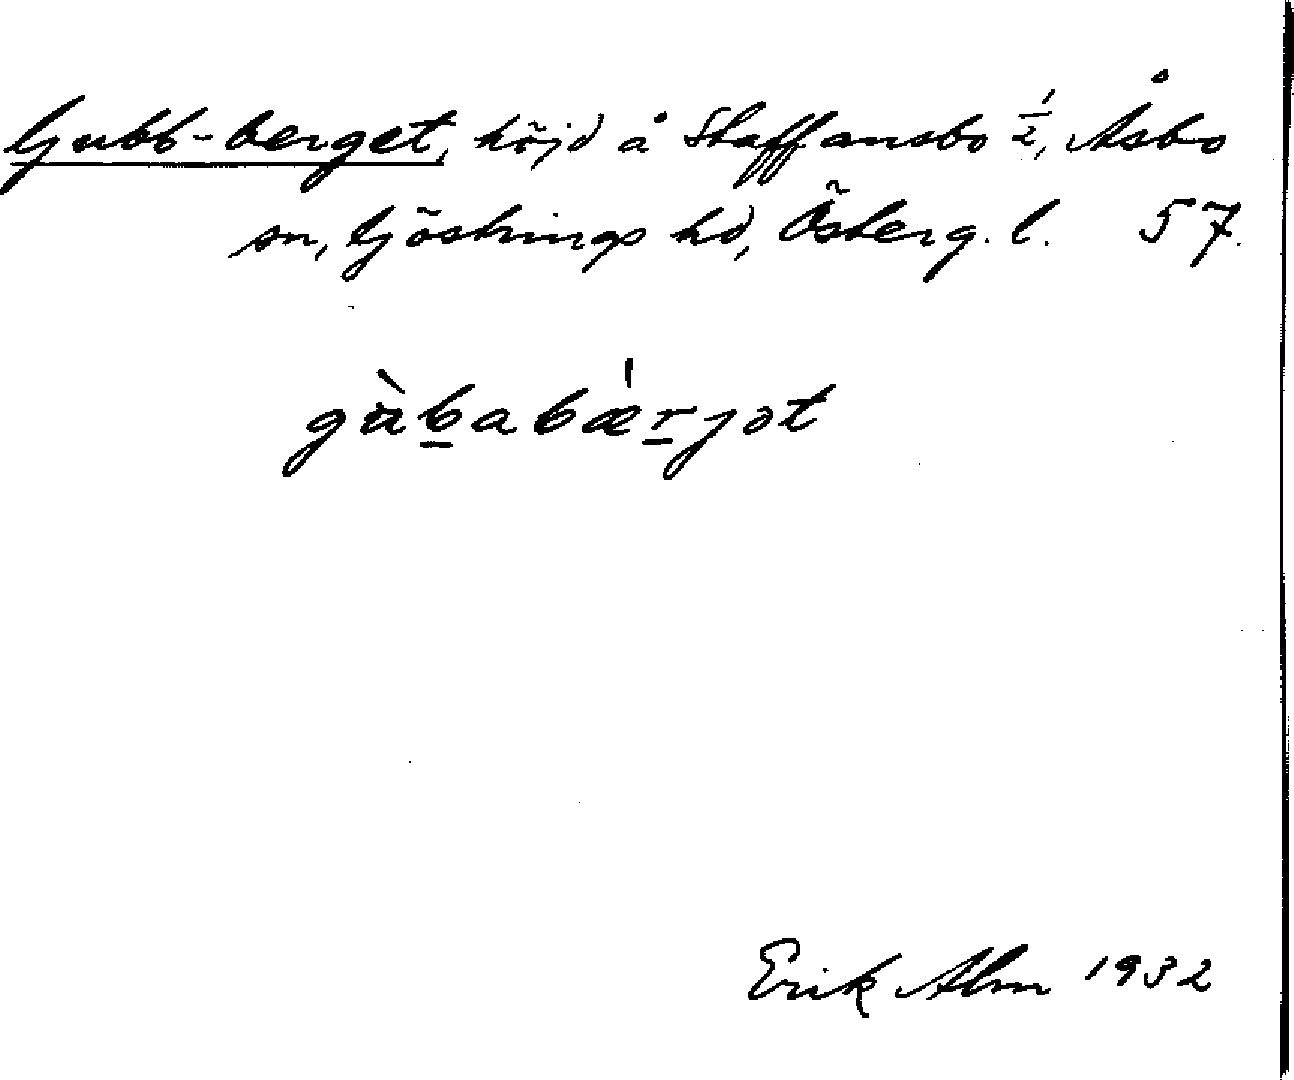 Gubb-berget, höjd å Staffansbo ½, Åsbo
sn, Göstrings hd, Österg. l. 57.
gùbabǽrjət
Erik Alm 1932